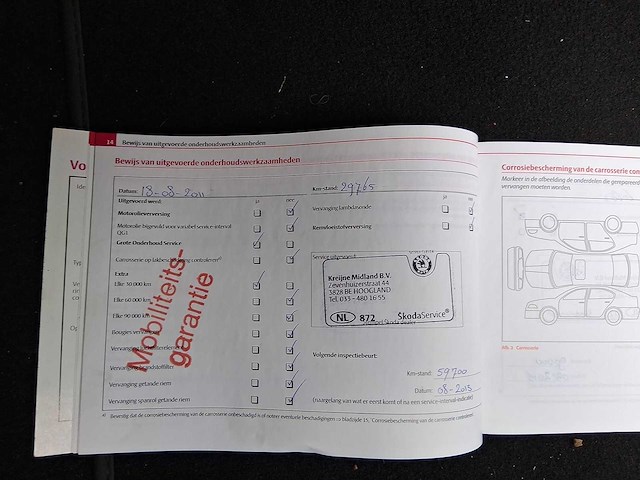 Vo
14 Bewijs van uitgevoerde onderhoudswerkzaamheden
Bewijs van uitgevoerde onderhoudswerkzaamheden
Datum: 18-08-2011
Km-stand: 29765
Uitgevoerd werd: ja nee
Motorolieverversing
Motorolie bijgevuld voor variabel service-interval
QG1
Grote Onderhoud Service
Carrosserie op lakbescherming controleren
Extra
Elke 30.000 km
Elke 60.000 km
Elke 90.000 km
Bougies vervangen
Vervanging
Vervanging brandstoffilter
Vervanging getande riem
Vervanging spanrol getande riem
Mobiliteits-
garantie
ja nee
Vervanging lambdasonde
Remvloeistofverversing
Service uitgevoerd:
Kreijne Midland B.V.
Zevenhuizerstraat 44
3828 BE HOOGLAND
Tel. 033-480 16 55
NL 872 ŠkodaService®
Stempel Škoda dealer
Volgende inspectiebeurt:
Km-stand: 59700
Datum: 08-2013
(naargelang van wat er eerst komt of na een service-interval-indicatie)
a) Bevestig dat de corrosiebescherming van de carrosserie onbeschadigd is of noteer eventuele beschadigingen ⇒ bladzijde 15, "Corrosiebescherming van de carrosserie controleren"
Corrosiebescherming van de carrosserie con
Markeer in de afbeelding de onderdelen die gerepareerd
vervangen moeten worden.
Afb. 2 Carrosserie